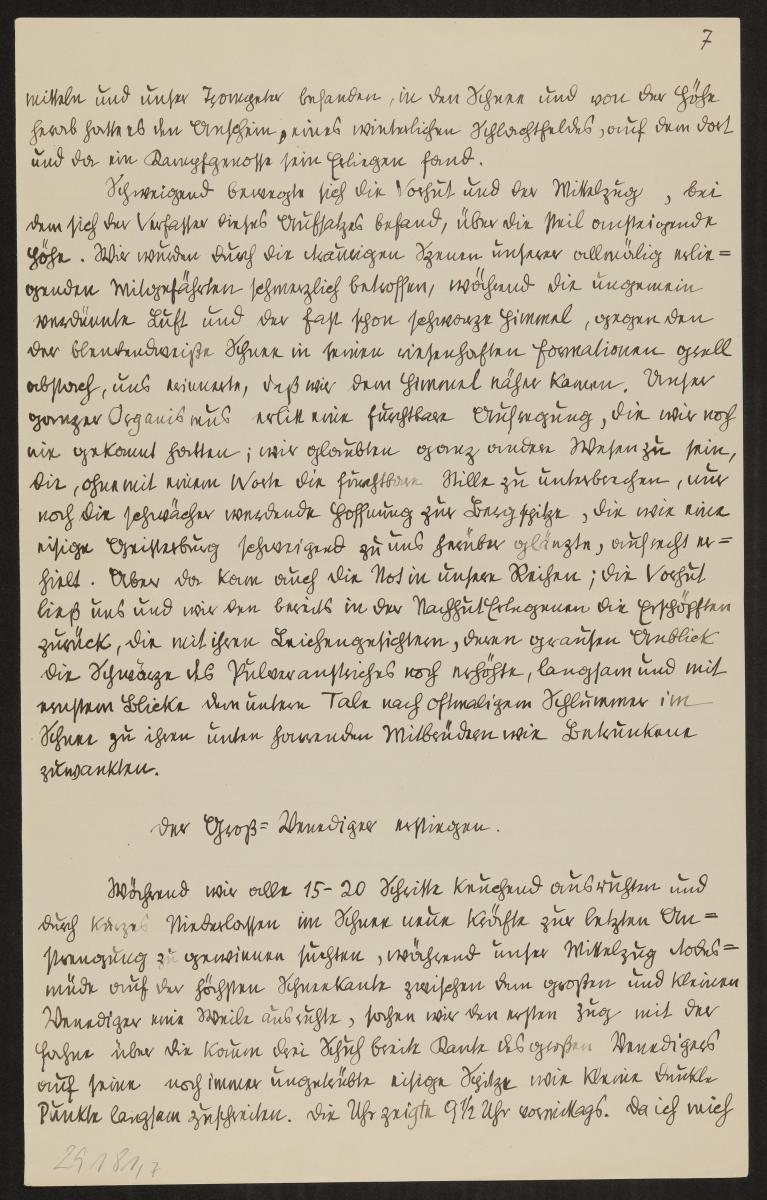 7
mitteln und unser Trompeter befanden, in den Schnee und von der Höhe
herab hatte es den Anschein, eines winterlichen Schlachtfeldes, auf dem dort
und da ein Kampfgenosse sein Erliegen fand.
Schweigend bewegte sich die Vorhut und der Mittelzug, bei
dem sich der Verfasser dieses Aufsatzes befand, über die steil ansteigende
Höhe. Wir wurden durch die traurigen Szenen unserer allmälig erlie=
genden Mitgefährten schmerzlich betroffen, während die ungemein
verdünnte Luft und der fast schon schwarze Himmel, gegen den
der blendendweiße Schnee in seinen riesenhaften Formationen grell
abstach, uns erinnerte, daß wir dem Himmel näher kamen. Unser
ganzer Organismus erlitt eine furchtbare Aufregung, die wir noch
nie gekannt hatten; wir glaubten ganz andere Wesen zu sein,
die, ohne mit einem Worte die furchtbare Stille zu unterbrechen, nur
noch die schwächer werdende Hoffnung zur Bergspitze, die wie eine
eisige Geisterburg schweigend zu uns herüber glänzte, aufrecht er=
hielt. Aber da kam auch die Not in unsere Reihen; die Vorhut
ließ uns und wir den bereits in der Nachhut Erlegenen die Erschöpften
zurück, die mit ihren Leichengesichtern, deren grausen Anblick
die Schwärze des Pulveranstriches noch erhöhte, langsam und mit
ernstem Blicke dem untern Tale nach oftmaligem Schlummer im
Schnee zu ihren unten harrenden Mitbrüdern wie Betrunkene
zuwankten.
Der Groß=Venediger erstiegen.
Während wir alle 15-20 Schritte keuchend ausruhten und
durch kurzes Niederlassen im Schnee neue Kräfte zur letzten An=
strengung zu gewinnen suchten, während unser Mittelzug todes=
müde auf der höchsten Schneekante zwischen dem großen und kleinen
Venediger eine Weile ausruhte, sahen wir den ersten Zug mit der
Fahne über die kaum drei Schuh breite Kante des großen Venedigers
auf seine noch immer ungetrübte eisige Spitze wie kleine dunkle
Punkte langsam zuschreiten. Die Uhr zeigte 9½ Uhr vormittags. Da ich mich
29181,7